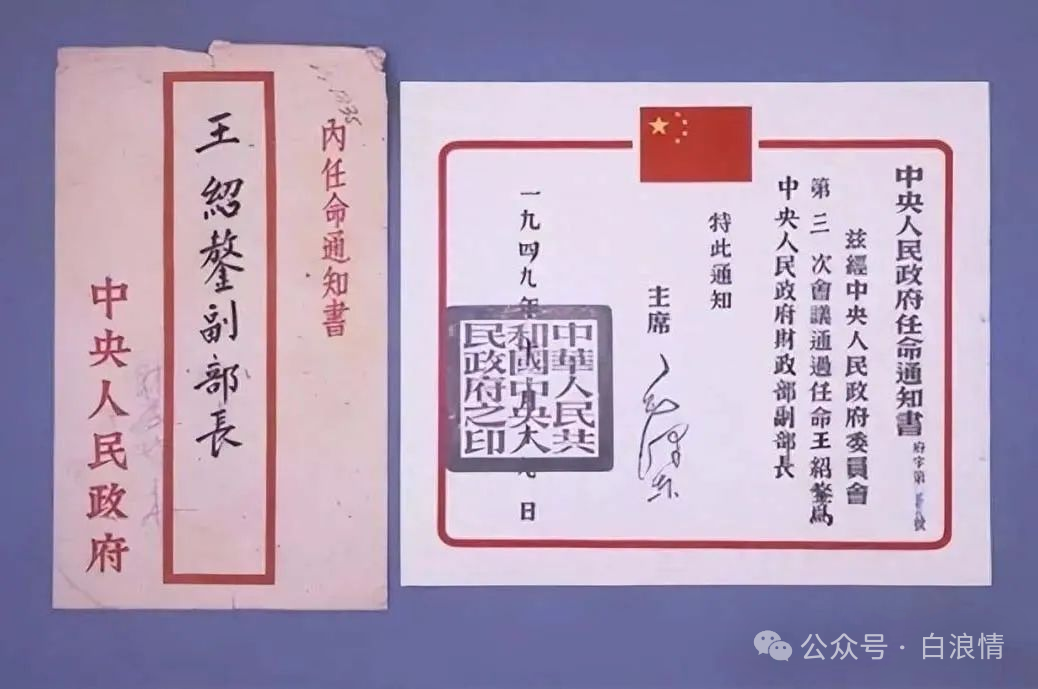 內任命通知書
王紹鏊副部長
中央人民政府
中央人民政府任命通知書
府字第 號
茲經中央人民政府委員會
第三次會議通過任命王紹鏊爲
中央人民政府財政部副部長
特此通知
主席 毛澤東
一九四九年十月十九日
中華人民共
和國中央人
民政府之印
公众号 · 白浪情